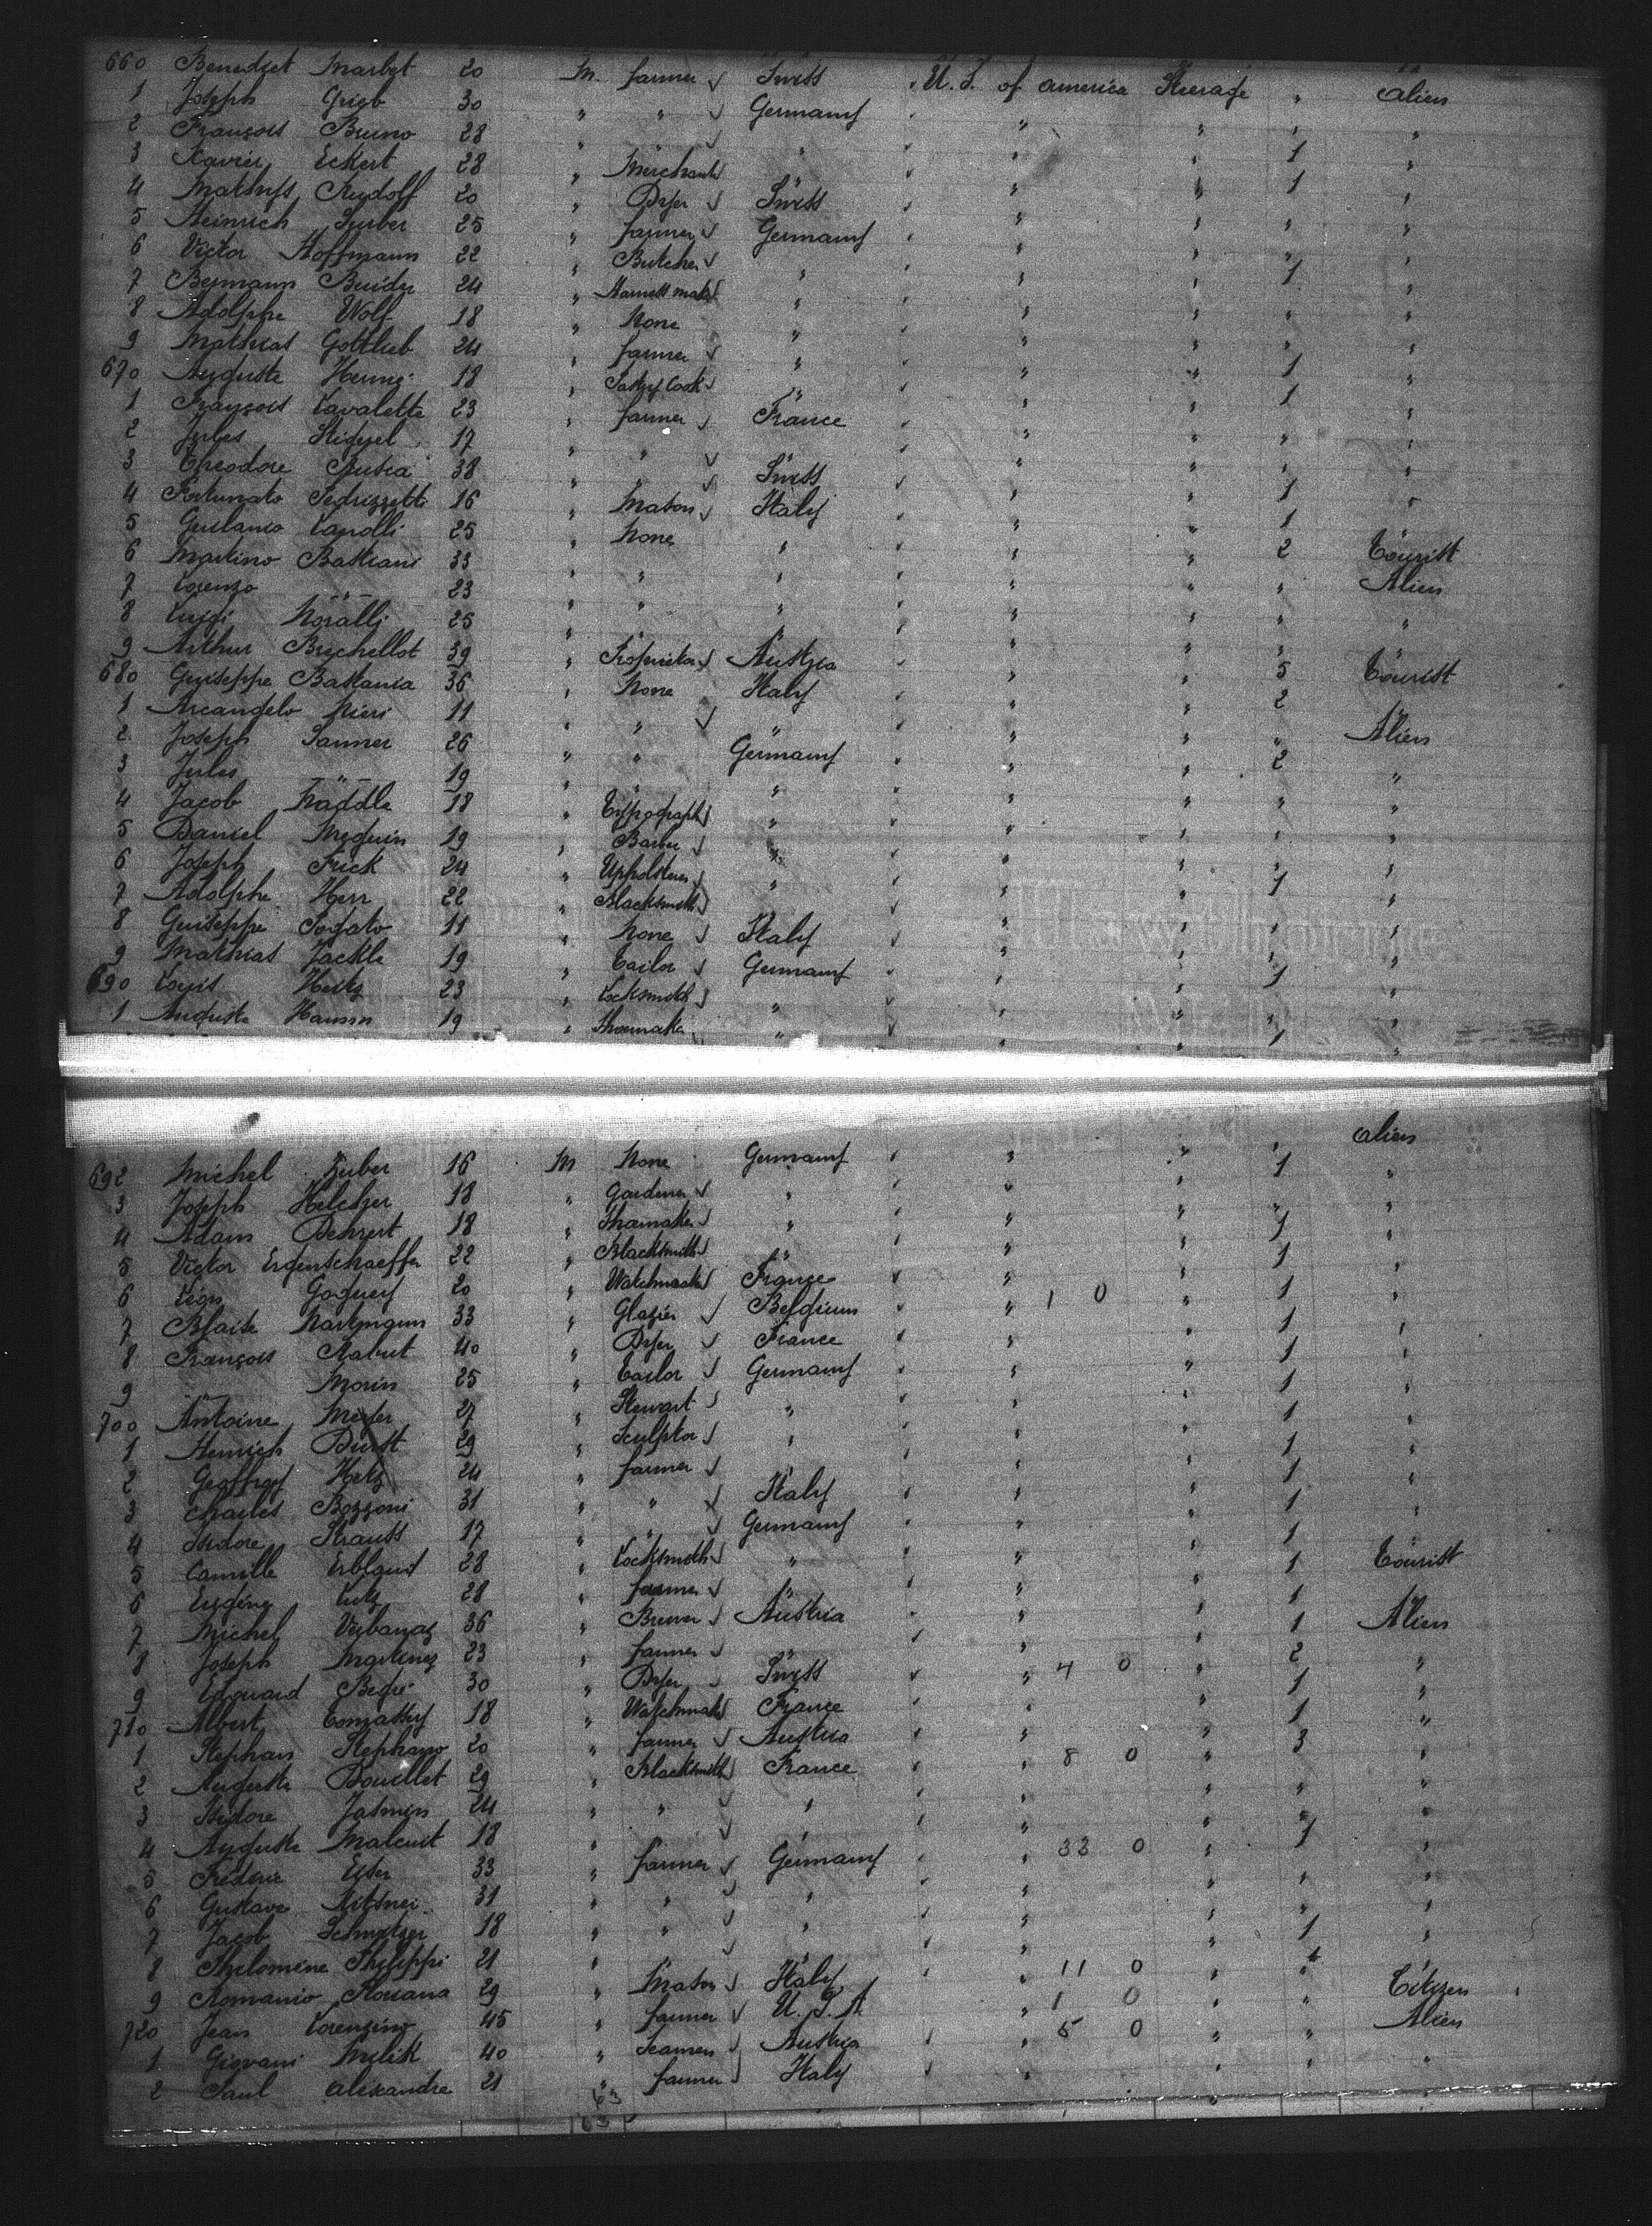 660 Benedict Marbet 20 M. farmer Swiss U.S. of america Steerage " alien
1 Joseph Grieb 30 " " Germany " " " "
2 François Bruno 28 " " " " " 1 "
3 Xavier Eckert 28 " Merchant " " " 1 "
4 Mathys Rudolf 20 " Dyer Swiss " " " "
5 Heinrich Surber 25 " farmer Germany " " " "
6 Victor Hoffmann 22 " Butcher " " " 1 "
7 Bermann 24 " Harness maker " " " " "
8 Adolphe Wolf 18 " None " " " " "
9 Mathias Gottlieb 24 " farmer " " " 1 "
670 Auguste 18 " Pastry Cook " " " 1 "
1 François Lavalette 23 " farmer France " " " "
2 Jules 17 " " " " " " "
3 Theodore 38 " " Swiss " " 1 "
4 Fortunato Pedrizzetti 16 " Mason Italy " " 1 "
5 25 " None " " " 2 Tourist
6 Martino Bastiani 33 " " " " " " Alien
7 Lorenzo " 23 " " " " " " "
8 Luigi Noralli 25 " " " " " " "
9 Arthur Brechellot 39 " Proprietor Austria " " 5 Tourist
680 Guiseppe Bastania 36 " None Italy " " 2 "
1 Arcangelo Nieri 11 " " " " " " Alien
2 Joseph Sanner 26 " " Germany " " 2 "
3 Jules " 19 " " " " " " "
4 Jacob Naddle 18 " Typograph " " " " "
5 Daniel Meguin 19 " Barber " " " " "
6 Joseph Frick 24 " Upholsterer " " " 1 "
7 Adolphe Herr 22 " Blacksmith " " " " "
8 Guiseppe Sogato 11 " None Italy " " " "
9 Mathias Jackle 19 " Tailor Germany " " 1 "
690 Louis Hertz 23 " Locksmith " " " " "
1 Auguste Hamm 19 " Shoemaker " " " 1 "
alien
692 Michel Zuber 16 M None Germany " " 1 "
3 Joseph Helcher 18 " Gardener " " " " "
4 Adam Dehrert 18 " Shoemaker " " " 1 "
5 Victor Ergenschaeffer 22 " Blacksmith " " " 1 "
6 Léon Goguey 20 " Watchmaker France " " 1 "
7 Blaise Hartmann 33 " Glazier Belgium " 1 0 " 1 "
8 François Rabut 40 " Dyer France " " 1 "
9 " Morin 25 " Tailor Germany " " 1 "
700 Antoine Meyer 27 " Stewart " " " 1 "
1 Heinrich Durst 29 " Sculptor " " " 1 "
2 Geoffroy Hetz 24 " farmer " " " 1 "
3 Charles Bozzoni 31 " " Italy " " 1 "
4 Isidore Strauss 17 " " Germany " " 1 "
5 Camille 28 " Locksmith " " " 1 Tourist
6 Eugène Lutz 28 " farmer " " " 1 "
7 Michel Verbanaz 36 " Brewer Austria " " 1 Alien
8 Joseph Martinez 23 " farmer " " " 2 "
9 Edouard 30 " Dyer Swiss " 4 0 " 1 "
710 Albert 18 " Watchmaker France " " 1 "
1 Stephan Stephano 20 " farmer Austria " " 3 "
2 Auguste Bouillet 29 " Blacksmith France " 8 0 " " "
3 Isidore Jasmin 24 " " " " " " "
4 Auguste Malcuit 18 " " " " " 1 "
5 Frederic 33 " farmer Germany " 33 0 " " "
6 Gustave 31 " " " " " " "
7 Jacob Schnetzer 18 " " " " " 1 "
8 Philomene Philippi 21 " " " " " " "
9 Romanio 29 " Mason Italy " 11 0 " " "
720 Jean Lorenzino 45 " farmer U.S.A. " 1 0 " " Citizen
1 Giovani Milik 40 " Seaman Austria " 5 0 " " Alien
2 Paul Alexandre 21 " farmer Italy " " " "
63
63